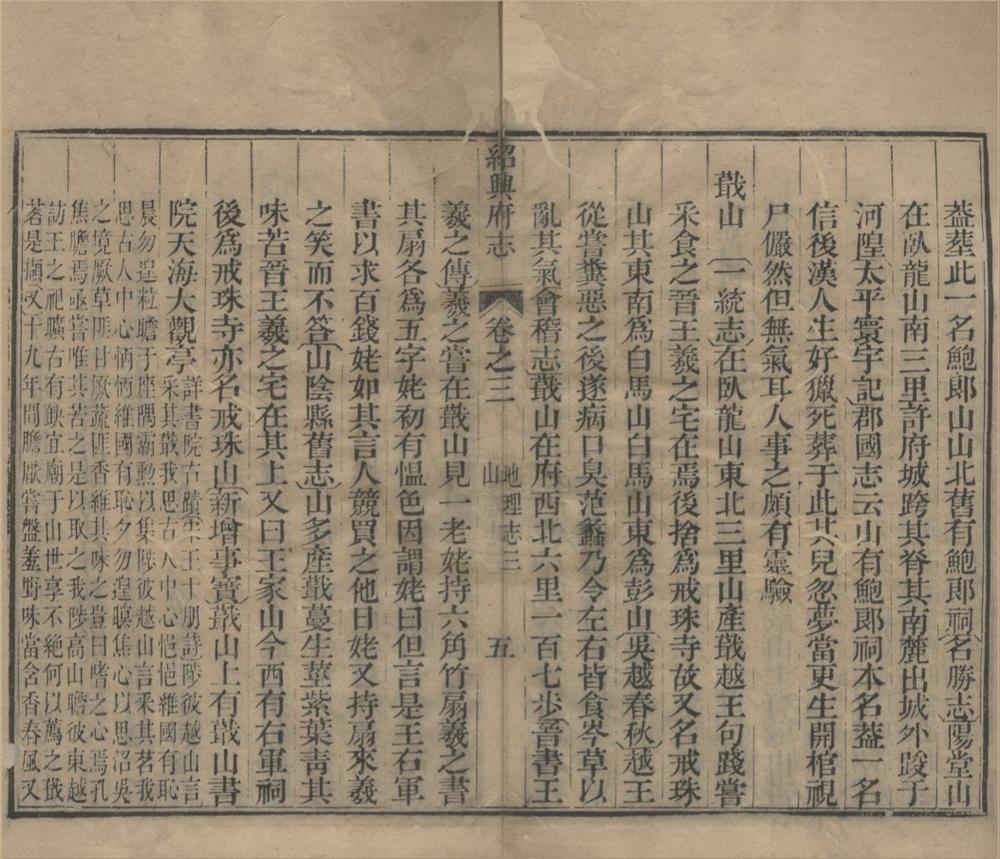 葢塟此一名鮑郞山山北舊有鮑郞祠名勝志陽堂山
在臥龍山南三里許府城跨其脊其南麓出城外踆于
河隍太平寰宇記郡國志云山有鮑郞祠本名葢一名
信後漢人生好獵死葬于此其兒忽夢當更生開棺視
尸儼然但無氣耳人事之頗有靈驗
蕺山 一統志在臥龍山東北三里山產蕺越王句踐嘗
采食之晉王羲之宅在焉後捨爲戒珠寺故又名戒珠
山其東南爲白馬山白馬山東爲彭山吳越春秋越王
從嘗糞惡之後遂病口臭范蠡乃令左右皆食岑草以
亂其氣會稽志蕺山在府西北六里一百七步晉書王
紹興府志 卷之三 地理志三 山 五
羲之傳羲之嘗在蕺山見一老姥持六角竹扇羲之書
其扇各爲五字姥初有慍色因謂姥曰但言是王右軍
書以求百錢姥如其言人競買之他日姥又持扇來羲
之笑而不答山陰縣舊志山多產蕺蔓生莖紫葉靑其
味苦晉王羲之宅在其上又曰王家山今西有右軍祠
後爲戒珠寺亦名戒珠山新增事實蕺山上有蕺山書
院天海大觀亭
詳書院古蹟宋王十朋詩陟彼越山言
采其蕺我思古人中心悒悒維國有恥
晨勿遑粒瞻于座隅霸勲以集陟彼越山言采其茗我
思古人中心怲怲維國有恥夕勿遑暝焦心以思沼吳
之境厥草匪甘厥蔬匪香維其味之豈曰嗜之心焉孔
焦膽焉亟嘗唯其苦之是以取之我陟高山瞻彼東越
訪王之祀曠古有缺宜廟于山世享不絕何以薦之蕺
茗是擷又十九年間膽厭嘗盤羞野味當含香春風又